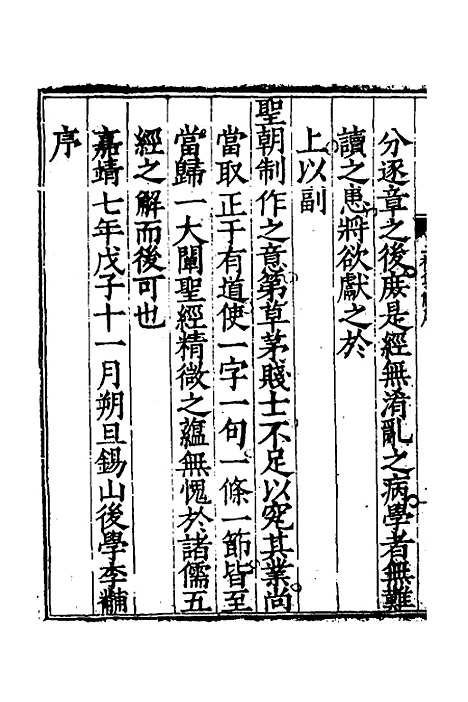 分逐章之後庶是經無淆亂之病學者無難
讀之患將欲獻之於
上以副
聖朝制作之意第草茅賤士不足以究其業尚
當取正于有道使一字一句一條一節皆至
當歸一大闡聖經精微之蘊無愧於諸儒五
經之解而後可也
嘉靖七年戊子十一月朔旦錫山後學李黼
序